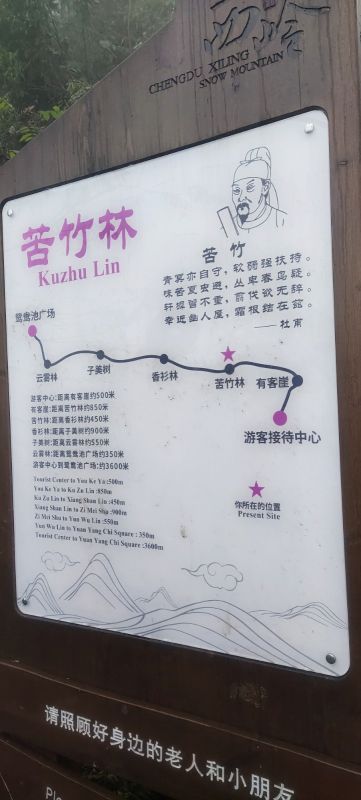 西岭
CHENGDU XILING
SNOW MOUNTAIN
苦竹林
Kuzhu Lin
苦竹
青冥亦自守,软弱强扶持。
味苦夏虫避,丛卑春鸟疑。
轩墀曾不重,翦伐欲无辞。
幸近幽人屋,霜根结在兹。
——杜甫
鸳鸯池广场
云雾林
子美树
香杉林
苦竹林
有客崖
游客接待中心
游客中心:距离有客崖约500米
有客崖:距离苦竹林约850米
苦竹林:距离香杉林约450米
香杉林:距离子美树约900米
子美树:距离云雾林约550米
云雾林:距离鸳鸯池广场约350米
游客中心到鸳鸯池广场:约3600米
Tourist Center to You Ke Ya :500m
You Ke Ya to Ku Zu Lin :850m
Ku Zu Lin to Xiang Shan Lin :450m
Xiang Shan Lin to Zi Mei Sha :900m
Zi Mei Shu to Yun Wu Lin :550m
Yun Wu Lin to Yuan Yang Chi Square : 350m
Tourist Center to Yuan Yang Chi Square :3600m
你所在的位置
Present Site
请照顾好身边的老人和小朋友